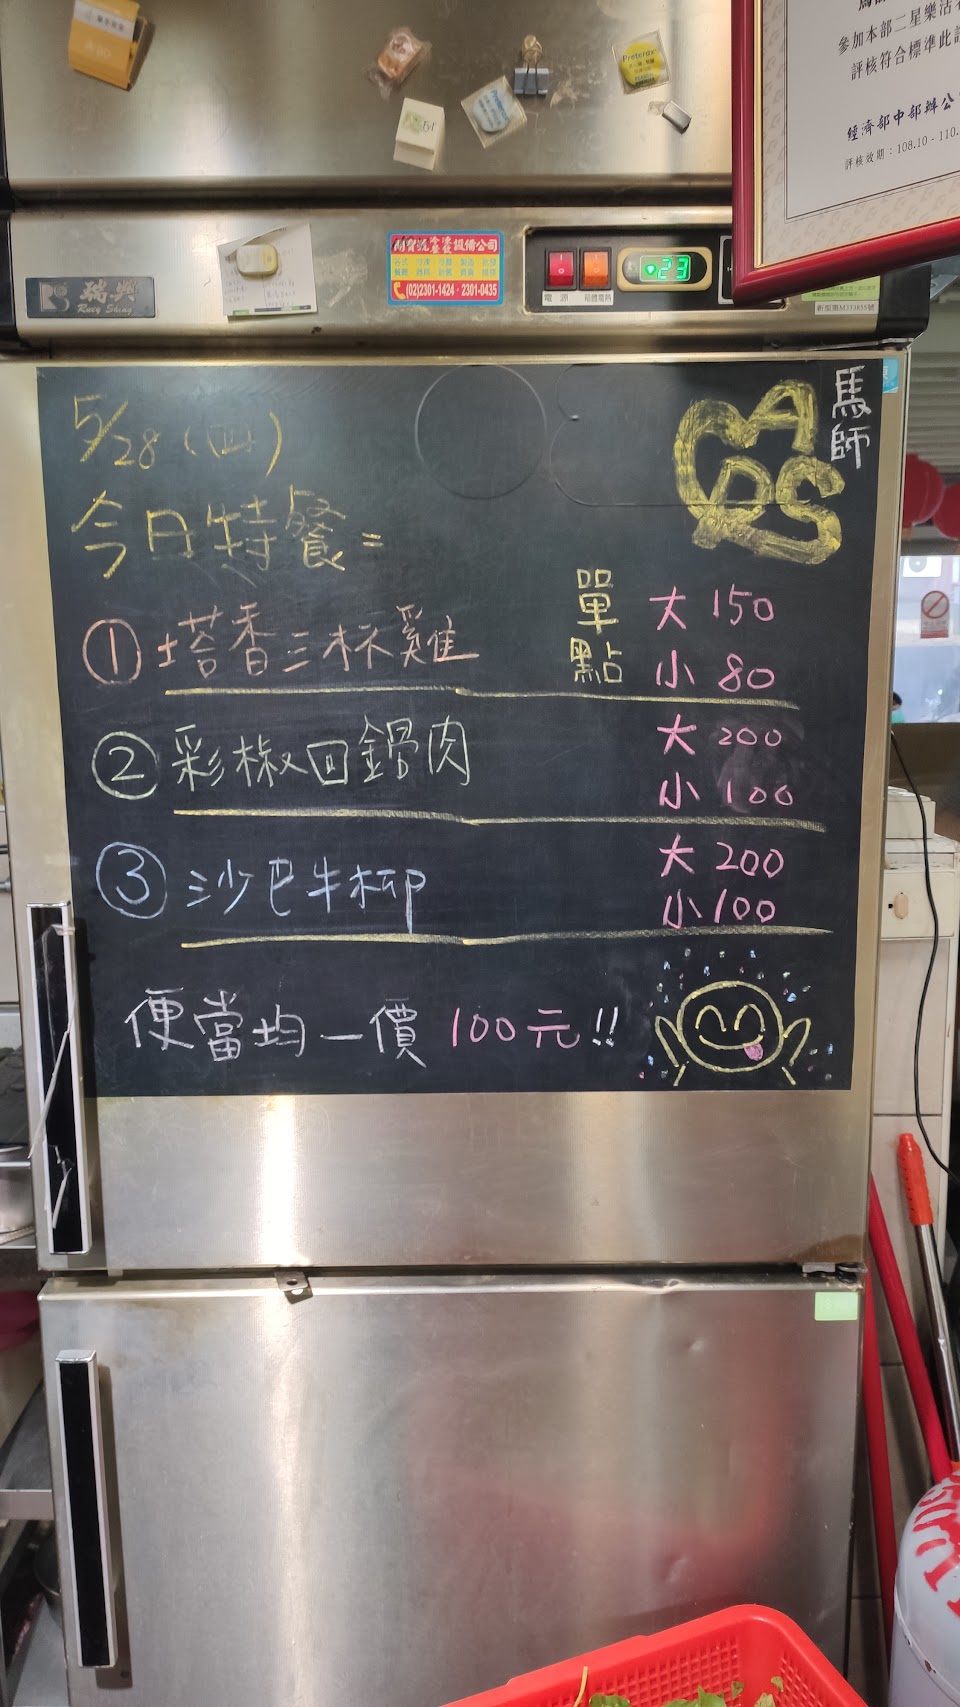 參加本部二星樂活
評核符合標準此
經濟部中部辦公
評核效期：108.10-110.
Preterax
瑞興
Ruey Shing
設備公司
(02)2301-1424·2301-0435
電源
箱體電熱
23
新型第M353855號
5/28（四）
馬師
今日特餐=
① 塔香三杯雞
單點
大 150
小 80
② 彩椒回鍋肉
大 200
小 100
③ 沙巴牛柳
大 200
小 100
便當均一價 100元!!